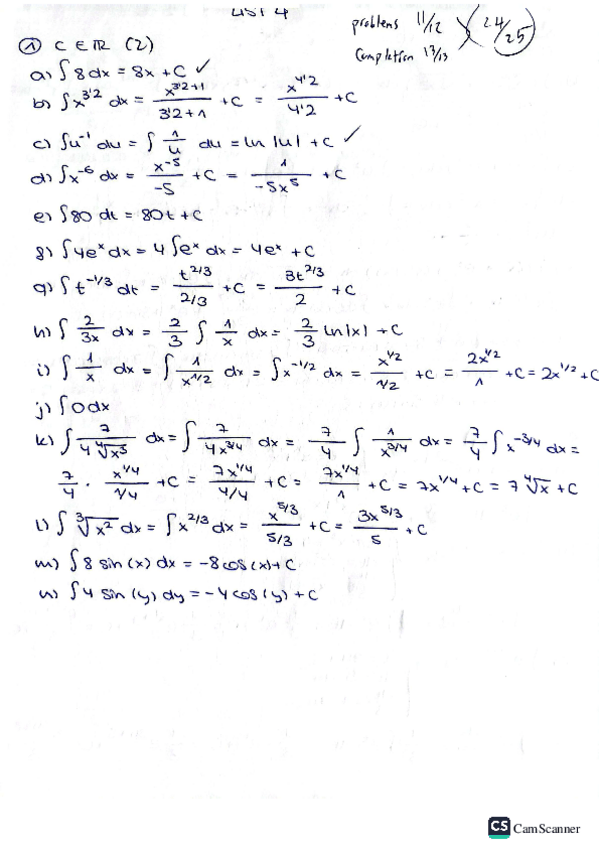 LIST 4
problems 11/12
24/25
Completion 13/13
① C ∈ ℝ (2)
a) ∫8 dx = 8x + C ✓
b) ∫x^3'2 dx = x^(3'2+1)/(3'2+1) + C = x^4'2/4'2 + C
c) ∫u^-1 du = ∫ 1/u du = ln |u| + C ✓
d) ∫x^-6 dx = x^-5/-5 + C = 1/(-5x^5) + C
e) ∫80 dt = 80t + C
g) ∫4e^x dx = 4∫e^x dx = 4e^x + C
g) ∫t^(-1/3) dt = t^(2/3)/(2/3) + C = 3t^(2/3)/2 + C
h) ∫ 2/3x dx = 2/3 ∫ 1/x dx = 2/3 ln|x| + C
i) ∫ 1/x dx = ∫ 1/x^(1/2) dx = ∫x^(-1/2) dx = x^(1/2)/(1/2) + C = 2x^(1/2)/1 + C = 2x^(1/2) + C
j) ∫0 dx
k) ∫ 7/(4 ∜x³) dx = ∫ 7/(4x^(3/4)) dx = 7/4 ∫ 1/x^(3/4) dx = 7/4 ∫x^(-3/4) dx =
7/4 · x^(1/4)/(1/4) + C = 7x^(1/4)/(4/4) + C = 7x^(1/4)/1 + C = 7x^(1/4) + C = 7 ∜x + C
l) ∫ ∛x² dx = ∫x^(2/3) dx = x^(5/3)/(5/3) + C = 3x^(5/3)/5 + C
m) ∫8 sin(x) dx = -8cos(x) + C
n) ∫4 sin(y) dy = -4cos(y) + C
CS CamScanner